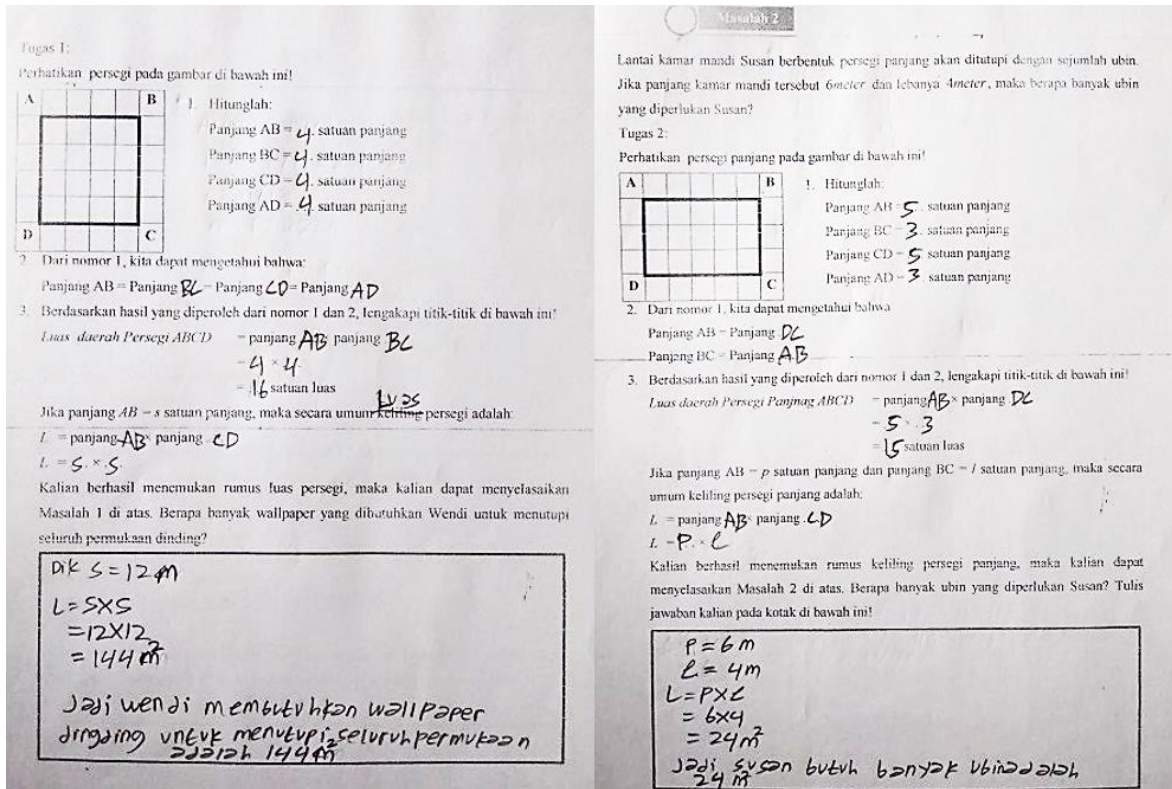 Tugas 1:
Perhatikan persegi pada gambar di bawah ini!
A B
D C
1. Hitunglah:
Panjang AB = 4. satuan panjang
Panjang BC = 4. satuan panjang
Panjang CD = 4. satuan panjang
Panjang AD = 4. satuan panjang
2. Dari nomor 1, kita dapat mengetahui bahwa:
Panjang AB = Panjang BC = Panjang CD = Panjang AD
3. Berdasarkan hasil yang diperoleh dari nomor 1 dan 2, lengakapi titik-titik di bawah ini!
Luas daerah Persegi ABCD = panjang AB panjang BC
= 4 × 4
= 16 satuan luas
Luas
Jika panjang AB = s satuan panjang, maka secara umum keliling persegi adalah:
L = panjang AB × panjang CD
L = S. × .S.
Kalian berhasil menemukan rumus luas persegi, maka kalian dapat menyelasaikan
Masalah 1 di atas. Berapa banyak wallpaper yang dibutuhkan Wendi untuk menutupi
seluruh permukaan dinding?
Dik S = 12 m
L = S X S
= 12 X 12
= 144 m²
Jadi wendi membutuhkan wallpaper
dingding untuk menutupi seluruh permukaan
adalah 144 m²
Masalah 2
Lantai kamar mandi Susan berbentuk persegi panjang akan ditutupi dengan sejumlah ubin.
Jika panjang kamar mandi tersebut 6meter dan lebanya 4meter, maka berapa banyak ubin
yang diperlukan Susan?
Tugas 2:
Perhatikan persegi panjang pada gambar di bawah ini!
A B
D C
1. Hitunglah:
Panjang AB = 5. satuan panjang
Panjang BC = 3. satuan panjang
Panjang CD = 5 satuan panjang
Panjang AD = 3 satuan panjang
2. Dari nomor 1, kita dapat mengetahui bahwa
Panjang AB = Panjang DC
Panjang BC = Panjang A.B
3. Berdasarkan hasil yang diperoleh dari nomor 1 dan 2, lengakapi titik-titik di bawah ini!
Luas daerah Persegi Panjnag ABCD = panjang AB × panjang DC
= 5 × 3
= 15 satuan luas
Jika panjang AB = p satuan panjang dan panjang BC = l satuan panjang, maka secara
umum keliling persegi panjang adalah:
L = panjang AB × panjang .CD
L = P. × l
Kalian berhasil menemukan rumus keliling persegi panjang, maka kalian dapat
menyelasaikan Masalah 2 di atas. Berapa banyak ubin yang diperlukan Susan? Tulis
jawaban kalian pada kotak di bawah ini!
P = 6 m
l = 4 m
L = P X l
= 6 x 4
= 24 m²
Jadi susan butuh banyak ubin adalah
24 m²